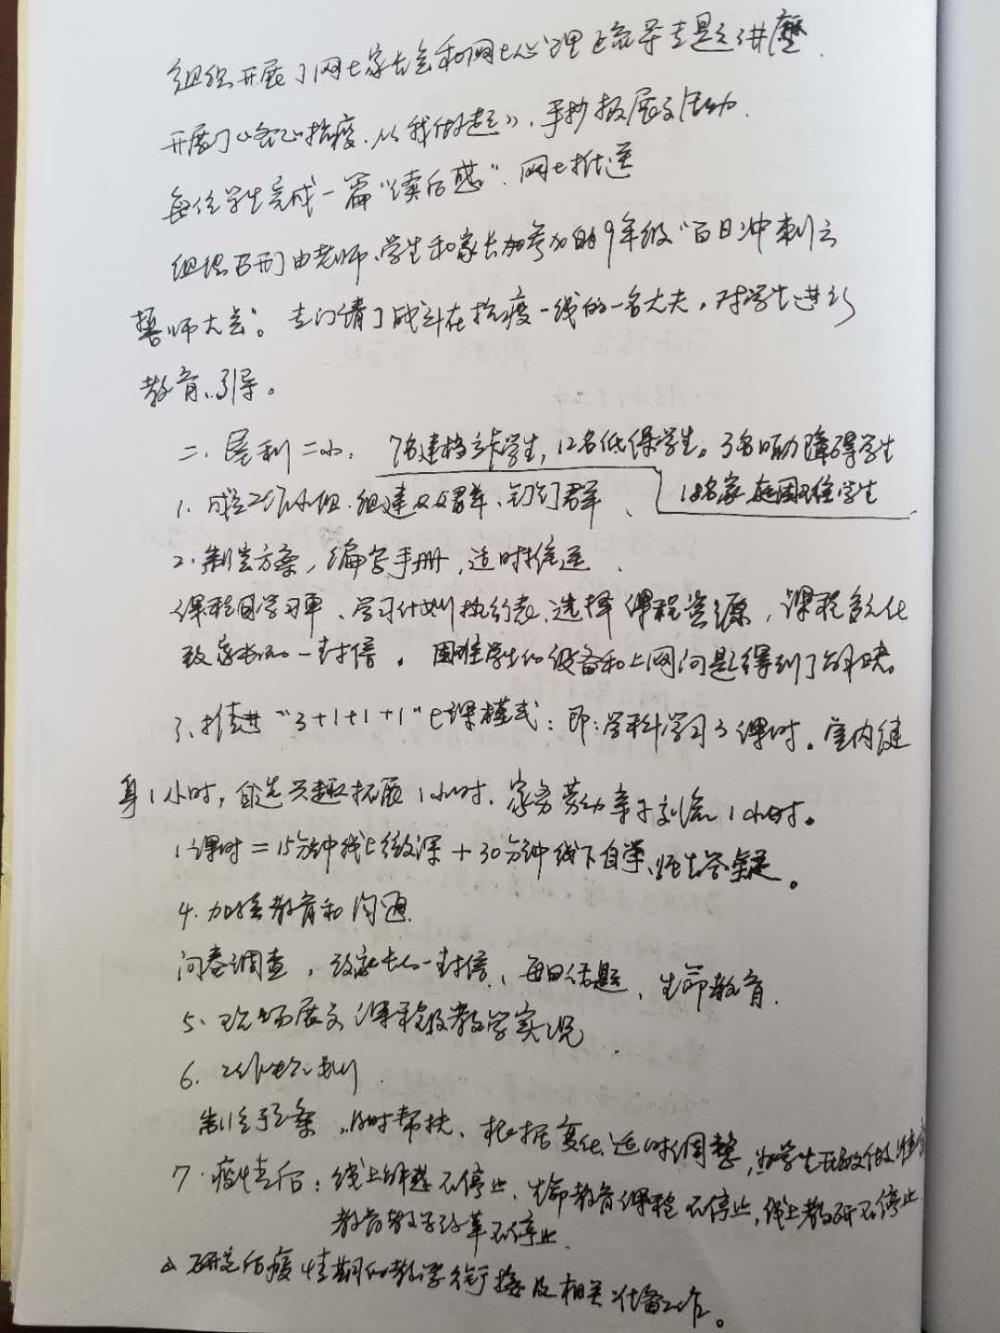 组织开展了网上家长会和网上心理疏导专题讲座.
开展了《众心抗疫.从我做起》.手抄报展示活动.
每位学生完成一篇"读后感".网上推送
组织召开由老师、学生和家长参加的9年级"百日冲刺云
誓师大会"。专门请了战斗在抗疫一线的一名大夫.对学生进行
教育、引导。
二. 垦利二小. 7名建档立卡学生, 12名低保学生. 3名听力障碍学生
18名家庭困难学生
1. 成立工作小组. 组建QQ群、钉钉群、
2. 制定方案, 编写手册, 适时推送.
课程周学习单、学习计划执行表. 选择课程资源, 课程多元化
致家长的一封信. 困难学生的设备和上网问题得到了解决。
3. 推进"3+1+1+1"e课模式: 即: 学科学习3课时. 室内健
身1小时, 自选兴趣拓展1小时. 家务劳动亲子交流1小时。
1课时=15分钟线上微课+30分钟线下自学、师生答疑。
4. 加强教育和沟通
问卷调查, 致家长的一封信、每日话题、生命教育.
5. 现场展示课程及教学实况.
6. 工作计划
制定预案, 及时帮扶、根据变化.适时调整, 为学生开放做准备
7. 疫情后: 线上解惑不停止. 生命教育课程不停止, 线上教研不停止
教育教学改革不停止.
△研究后疫情期的教学衔接及相关准备工作。